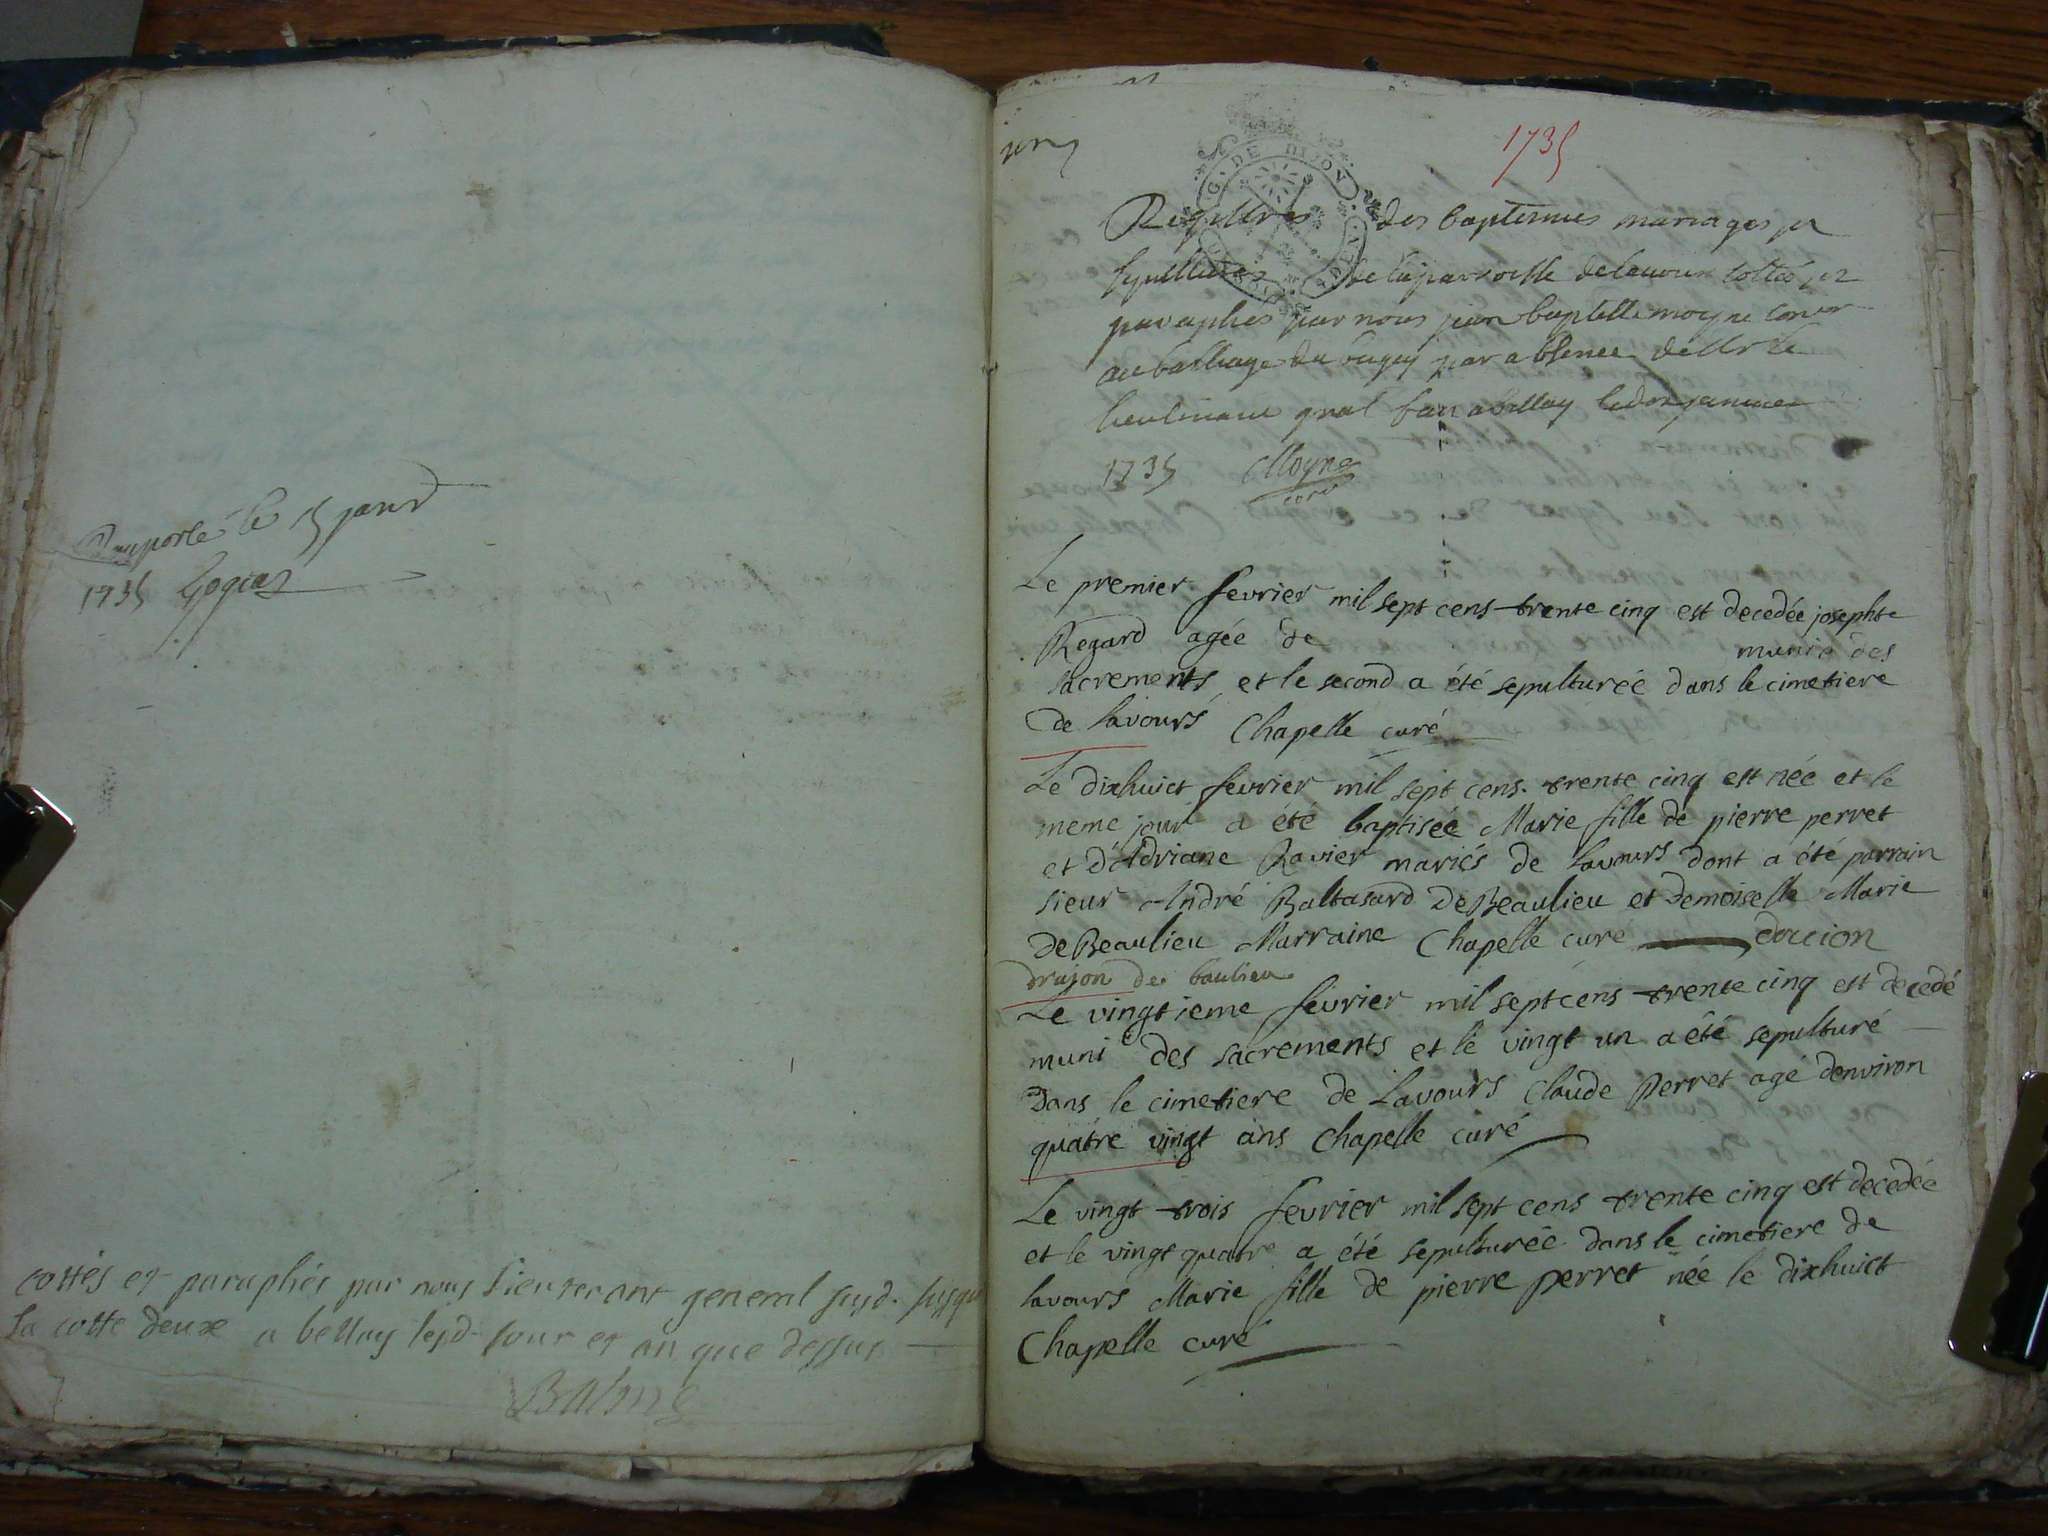 Rapporté le 15 janv
1735
cottés et paraphés par nous Lieutenant general susd. jusqu
la cotte deux a bellay lesd. jour et an que dessus
Balme
1735
G. DE DIJON
Registres des baptemes mariages et
sepultures de la parroisse de lavour cottés et
paraphés par nous jean baptiste moyne
au balliage du bugey par absence de Mr le
lieutenant gnal fait a bellay le janvier
1735 Moyne
Le premier fevrier mil sept cens trente cinq est decedée josephte
Regard agée de munie des
sacrements et le second a été sepulturée dans le cimetiere
de lavours Chapelle curé
Le dixhuict fevrier mil sept cens trente cinq est née et le
meme jour a été baptisée Marie fille de pierre perret
et d'Adriane Ravier mariés de lavours dont a été parrain
sieur André Baltasard DeBeaulieu et Demoiselle Marie
DeBeaulieu Marraine Chapelle curé doccion
drujon de baulieu
Le vingtieme fevrier mil sept cens trente cinq est decedé
muni des sacrements et le vingt un a été sepulturé
Dans le cimetiere de Lavours Claude Perret agé denviron
quatre vingt ans Chapelle curé
Le vingt trois fevrier mil sept cens trente cinq est decedée
et le vingt quatre a été sepulturée dans le cimetiere de
lavours Marie fille de pierre perret née le dixhuict
Chapelle curé